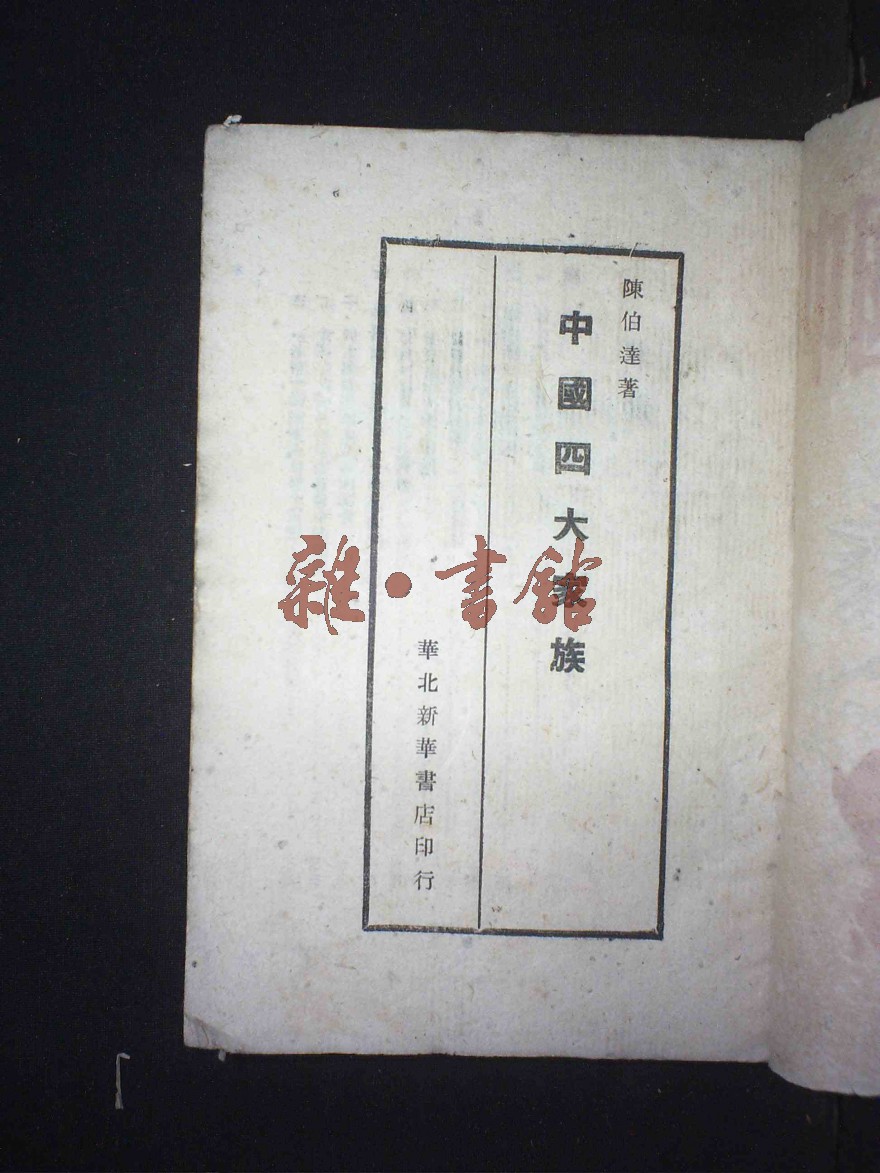 陳伯達著
中國四大家族
華北新華書店印行
雜·書館